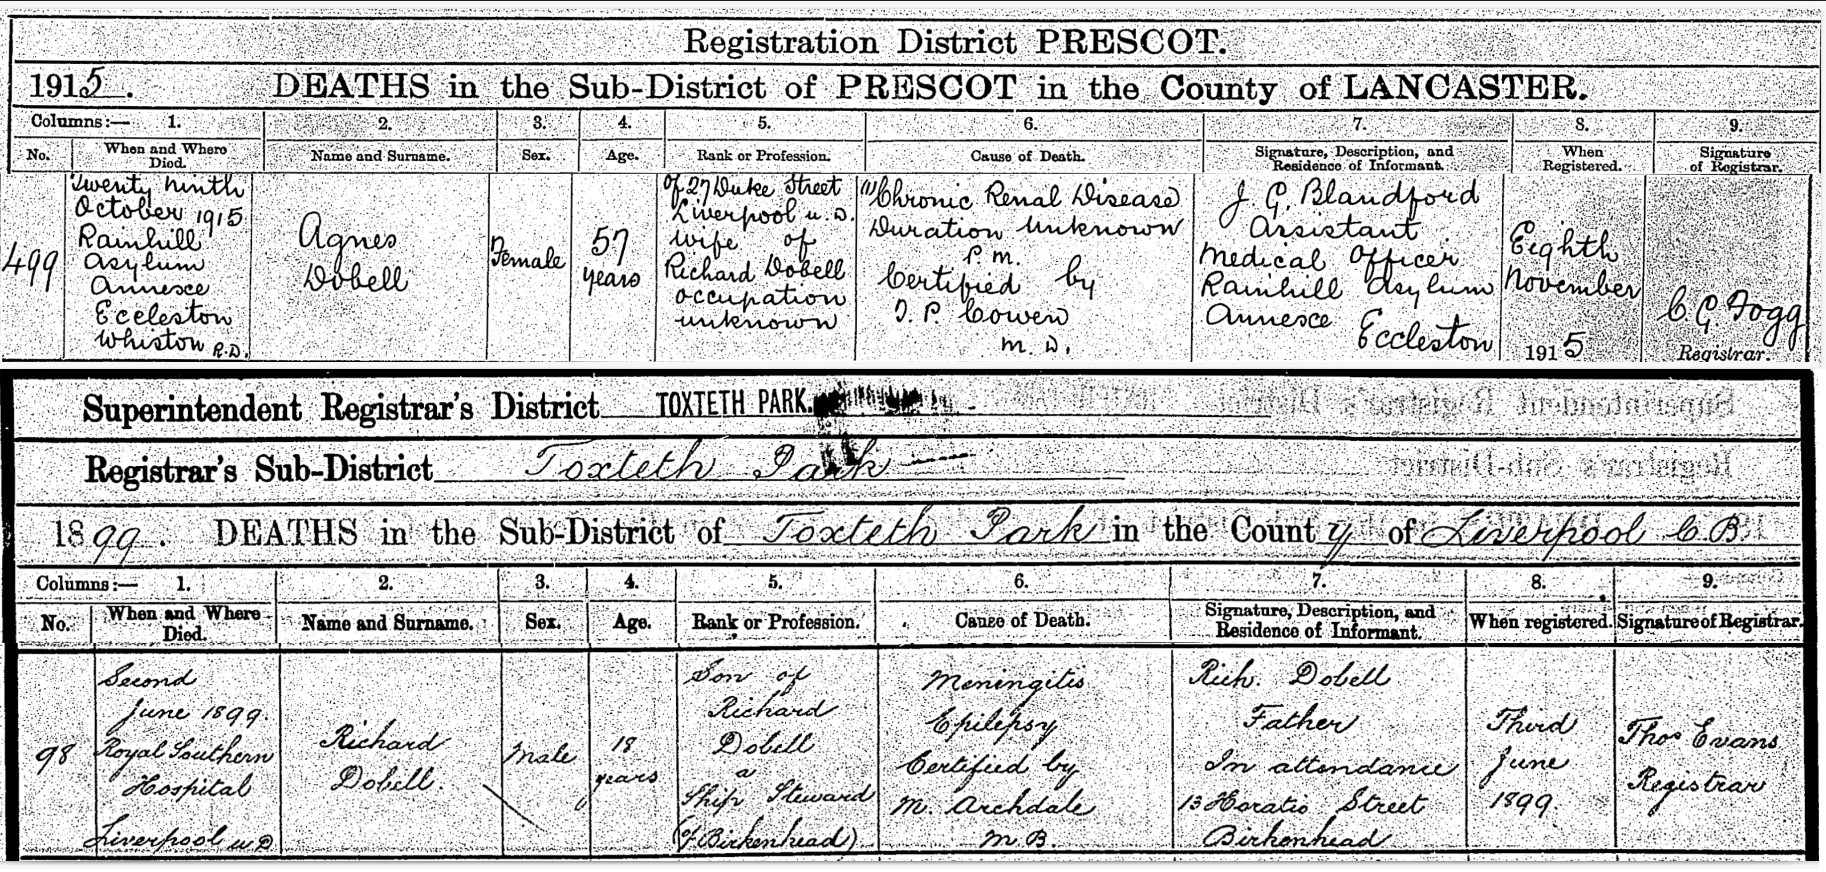 Registration District PRESCOT.
1915. DEATHS in the Sub-District of PRESCOT in the County of LANCASTER.
Columns:— 1. 2. 3. 4. 5. 6. 7. 8. 9.
No. When and Where Died. Name and Surname. Sex. Age. Rank or Profession. Cause of Death. Signature, Description, and Residence of Informant. When Registered. Signature of Registrar.
499
Twenty ninth
October 1915
Rainhill
Asylum
Annesce
Eccleston
Whiston R.D.
Agnes
Dobell
Female
57
years
of 27 Duke Street
Liverpool u.D.
wife of
Richard Dobell
occupation
unknown
(1) Chronic Renal Disease
Duration unknown
P.m.
Certified by
T. P. Cowen
M.D.
J. G. Blandford
Assistant
Medical Officer
Rainhill Asylum
Annesce
Eccleston
Eighth
November
1915
C. G. Fogg
Registrar.
Superintendent Registrar's District TOXTETH PARK.
Registrar's Sub-District Toxteth Park
1899. DEATHS in the Sub-District of Toxteth Park in the County of Liverpool C.B.
Columns:— 1. 2. 3. 4. 5. 6. 7. 8. 9.
No. When and Where Died. Name and Surname. Sex. Age. Rank or Profession. Cause of Death. Signature, Description, and Residence of Informant. When registered. Signature of Registrar.
98
Second
June 1899.
Royal Southern
Hospital
Liverpool u.D
Richard
Dobell.
Male
18
years
Son of
Richard
Dobell
a
Ship Steward
(of Birkenhead)
Meningitis
Epilepsy
Certified by
M. Archdale
M.B.
Rich. Dobell
Father
In attendance
13 Horatio Street
Birkenhead
Third
June
1899.
Thos Evans
Registrar